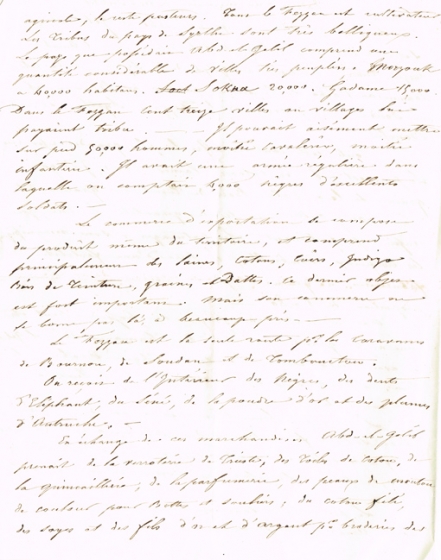 agricole, le reste pasteurs. Dans le Fezzan est cultivateur
Les Tribus du pays de Syrthe sont très belliqueux.
Le pays que possédait Abd el Gelil comprend une
quantité considérable de villes très peuplées. Morzouk
a 60000 habitans. Sokna 20000. Gadame 15000.
Dans le Fezzan Cent treize villes ou villages lui
payaient tribu. — Il pouvait aisément mettre
sur pied 50000 hommes, moitié cavalerie, moitié
infanterie. Il avait une armée régulière dans
laquelle on comptait nègres d'excellents
soldats. —
Le commerce d'exportation se compose
du produit même du territoire, et comprend
principalement des laines, Cotons, Cuirs, Indigo
Bois de Teinture, graines et Dattes. Ce dernier objet
est fort important. Mais son commerce ne
se borne pas là à beaucoup près —
Le Fezzan est la seule route pr les caravanes
de Bournou, de Soudan et de Tombouctou.
On reçoit de l'Intérieur des Nègres, des dents
d'Elephant, du Séné, de la poudre d'or et des plumes
d'Autruche. —
En échange de ces marchandises Abd-el-Gelil
prenait de la verroterie de Trieste, des Toiles de Coton, de
la quincaillerie, de la parfumerie, des peaux de mouton
de couleur pour Bottes et souliers, du coton filé,
des soyes et des fils d'or et d'argent pr broderies des